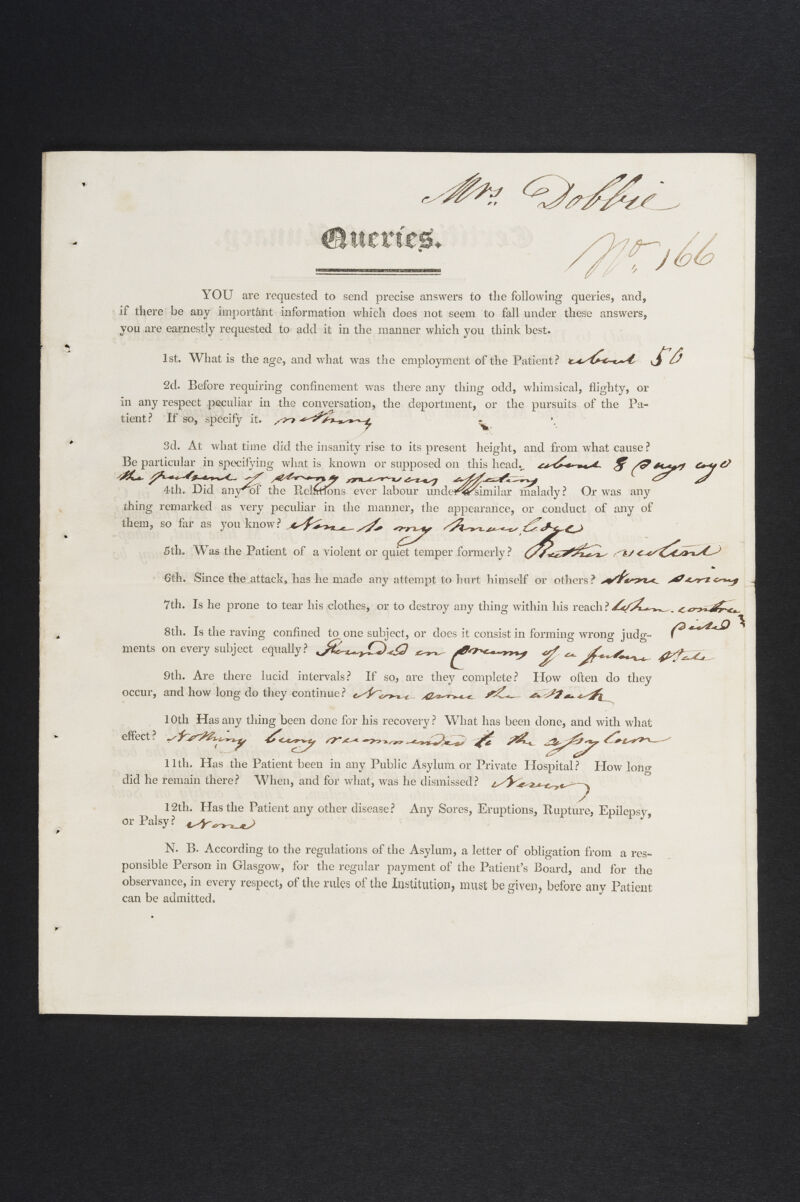 Mrs. Dobbie
Queries.
No. 166
YOU are requested to send precise answers to the following queries, and,
if there be any important information which does not seem to fall under these answers,
you are earnestly requested to add it in the manner which you think best.
1st. What is the age, and what was the employment of the Patient? about 50
2d. Before requiring confinement was there any thing odd, whimsical, flighty, or
in any respect peculiar in the conversation, the deportment, or the pursuits of the Pa-
tient? If so, specify it. nothing
3d. At what time did the insanity rise to its present height, and from what cause?
Be particular in specifying what is known or supposed on this head. about 8 Days ago
the patient of strong nervous
4th. Did any of the Relations ever labour under a similar malady? Or was any
thing remarked as very peculiar in the manner, the appearance, or conduct of any of
them, so far as you know? None to my knowledge
5th. Was the Patient of a violent or quiet temper formerly? Rather violent
6th. Since the attack, has he made any attempt to hurt himself or others? None serious
7th. Is he prone to tear his clothes, or to destroy any thing within his reach? When contra
dicted
8th. Is the raving confined to one subject, or does it consist in forming wrong judg-
ments on every subject equally? Founded on Dreams of a future State
9th. Are there lucid intervals? If so, are they complete? How often do they
occur, and how long do they continue? None since the attack
10th Has any thing been done for his recovery? What has been done, and with what
effect? Nothing being recommended to the assylum
11th. Has the Patient been in any Public Asylum or Private Hospital? How long
did he remain there? When, and for what, was he dismissed? Never
12th. Has the Patient any other disease? Any Sores, Eruptions, Rupture, Epilepsy,
or Palsy? None
N. B. According to the regulations of the Asylum, a letter of obligation from a res-
ponsible Person in Glasgow, for the regular payment of the Patient's Board, and for the
observance, in every respect, of the rules of the Institution, must be given, before any Patient
can be admitted.